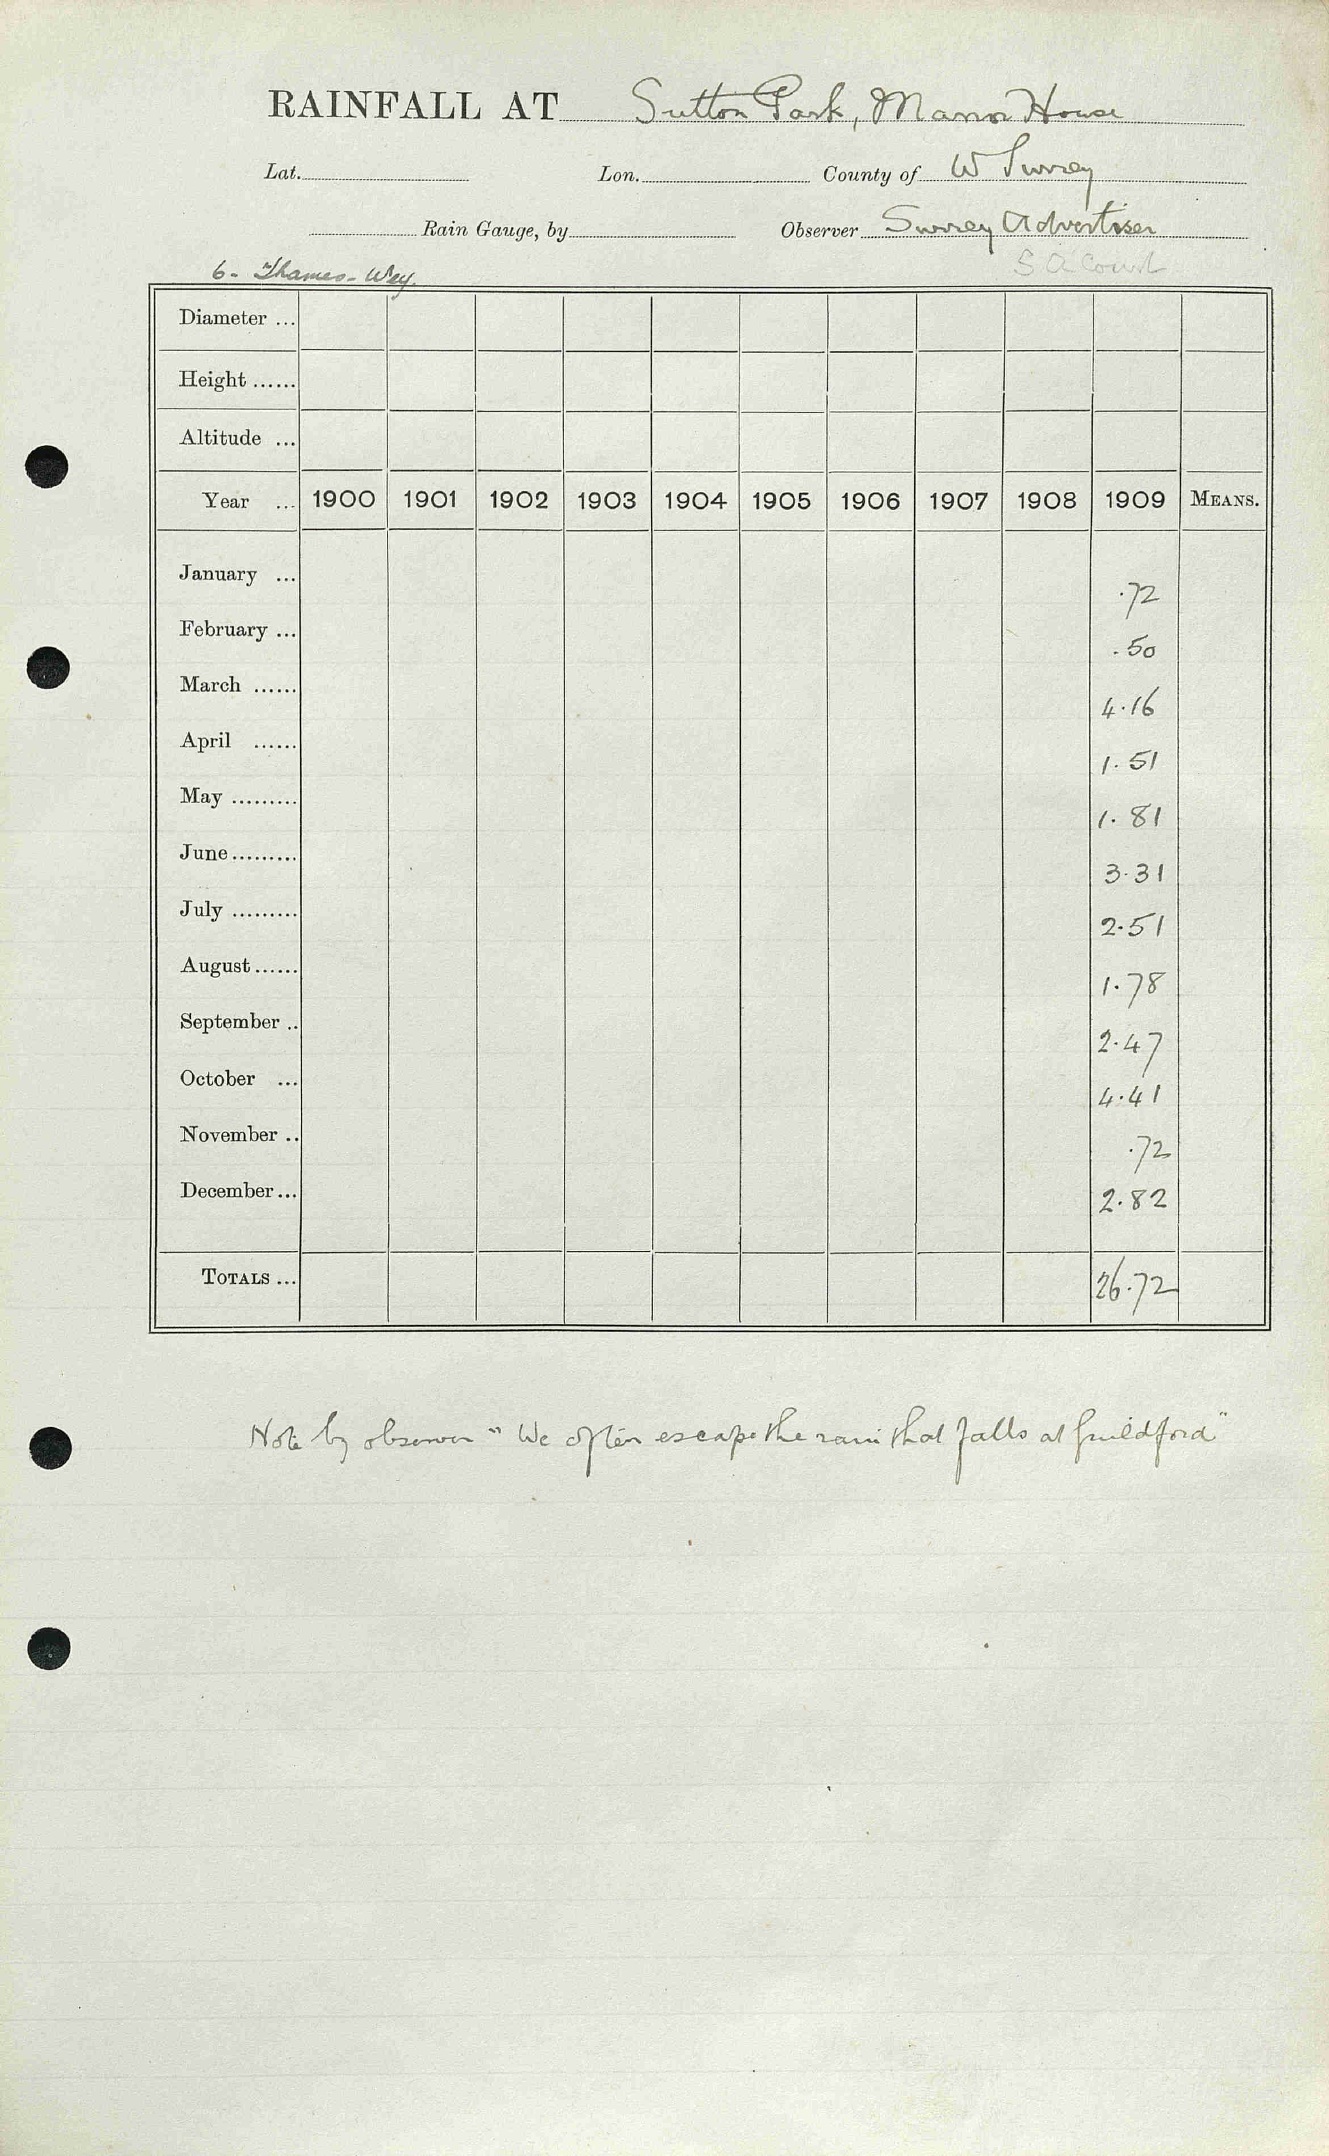 RAINFALL AT Sutton Park, Manor House
Lat. Lon. County of W Surrey
Rain Gauge, by Observer Surrey Advertiser
S A Court
6 - Thames - Wey.
Diameter ...
Height ......
Altitude ...
Year ... 1900 1901 1902 1903 1904 1905 1906 1907 1908 1909 MEANS.
January ... .72
February ... .50
March ...... 4.16
April ...... 1.51
May ......... 1.81
June ......... 3.31
July ......... 2.51
August ...... 1.78
September .. 2.47
October ... 4.41
November .. .72
December ... 2.82
TOTALS ... 26.72
Note by observer "We often escape the rain that falls at Guildford"